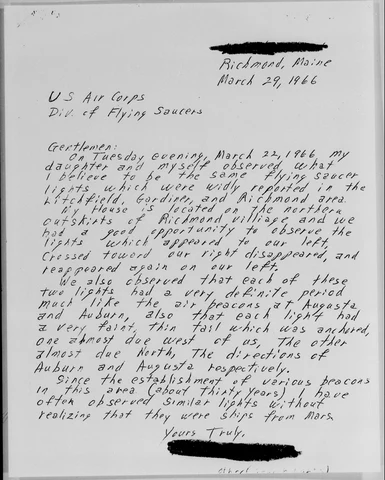 Richmond, Maine
March 29, 1966
U S Air Corps
Div. of Flying Saucers
Gentlemen:
On Tuesday evening, March 22, 1966, my
daughter and myself observed what
I believe to be the same flying saucer
lights which were widly reported in the
Litchfield, Gardiner, and Richmond area.
My House is located on the northern
outskirts of Richmond villiage and we
had a good opportunity to observe the
lights which appeared to our left,
Crossed toward our right disappeared, and
reappeared again on our left.
We also observed that each of these
two lights had a very definite period
much like the air beacons at Augusta
and Auburn, also that each light had
a very faint, thin tail which was anchored,
one almost due west of us, The other
almost due North, The directions of
Auburn and Augusta respectively.
Since the establishment of various beacons
in this area (about Thirty Years) I have
often observed similar lights without
realizing that they were ships from Mars
Yours Truly,